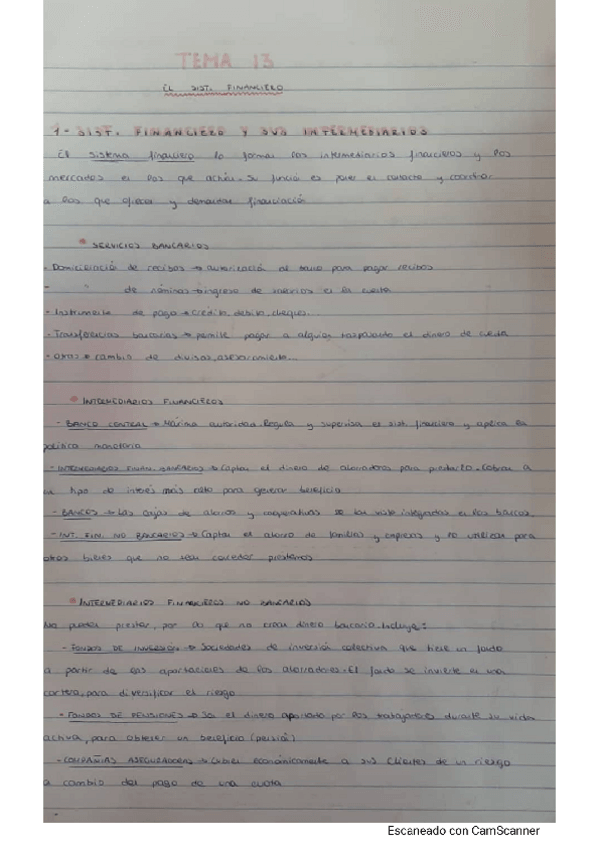 TEMA 13
EL SIST. FINANCIERO
1- SIST. FINANCIERO Y SUS INTERMEDIARIOS
El sistema financiero lo forman los intermediarios financieros y los
mercados en los que actúan. Su función es poner en contacto y coordinar
a los que ofrecen y demandan financiación
• SERVICIOS BANCARIOS
- Domiciliación de recibos → autorización al banco para pagar recibos
- " de nóminas → ingreso de salarios en la cuenta
- Instrumentos de pago → crédito, débito, cheques...
- Transferencias bancarias → permite pagar a alguien traspasando el dinero de cuenta
- Otros → cambio de divisas, asesoramiento...
• INTERMEDIARIOS FINANCIEROS
- BANCO CENTRAL → Máxima autoridad. Regula y supervisa el sist. financiero y aplica la
política monetaria
- INTERMEDIARIOS FINAN. BANCARIOS → Captan el dinero de ahorradores para prestarlo. Cobran a
un tipo de interés más alto para generar beneficio
- BANCOS → Las cajas de ahorro y cooperativas se han visto integradas en los bancos.
- INT. FIN. NO BANCARIOS → Captan el ahorro de familias y empresas y lo utilizan para
otros bienes que no sean conceder préstamos
• INTERMEDIARIOS FINANCIEROS NO BANCARIOS
No pueden prestar, por lo que no crean dinero bancario. Incluye:
- FONDOS DE INVERSIÓN → Sociedades de inversión colectiva que tiene un fondo
a partir de las aportaciones de los ahorradores. El fondo se invierte en una
cartera, para diversificar el riesgo
- FONDOS DE PENSIONES → Es el dinero aportado por los trabajadores durante su vida
activa, para obtener un beneficio (pensión)
- COMPAÑÍAS ASEGURADORAS → Cubren económicamente a sus clientes de un riesgo
a cambio del pago de una cuota
Escaneado con CamScanner